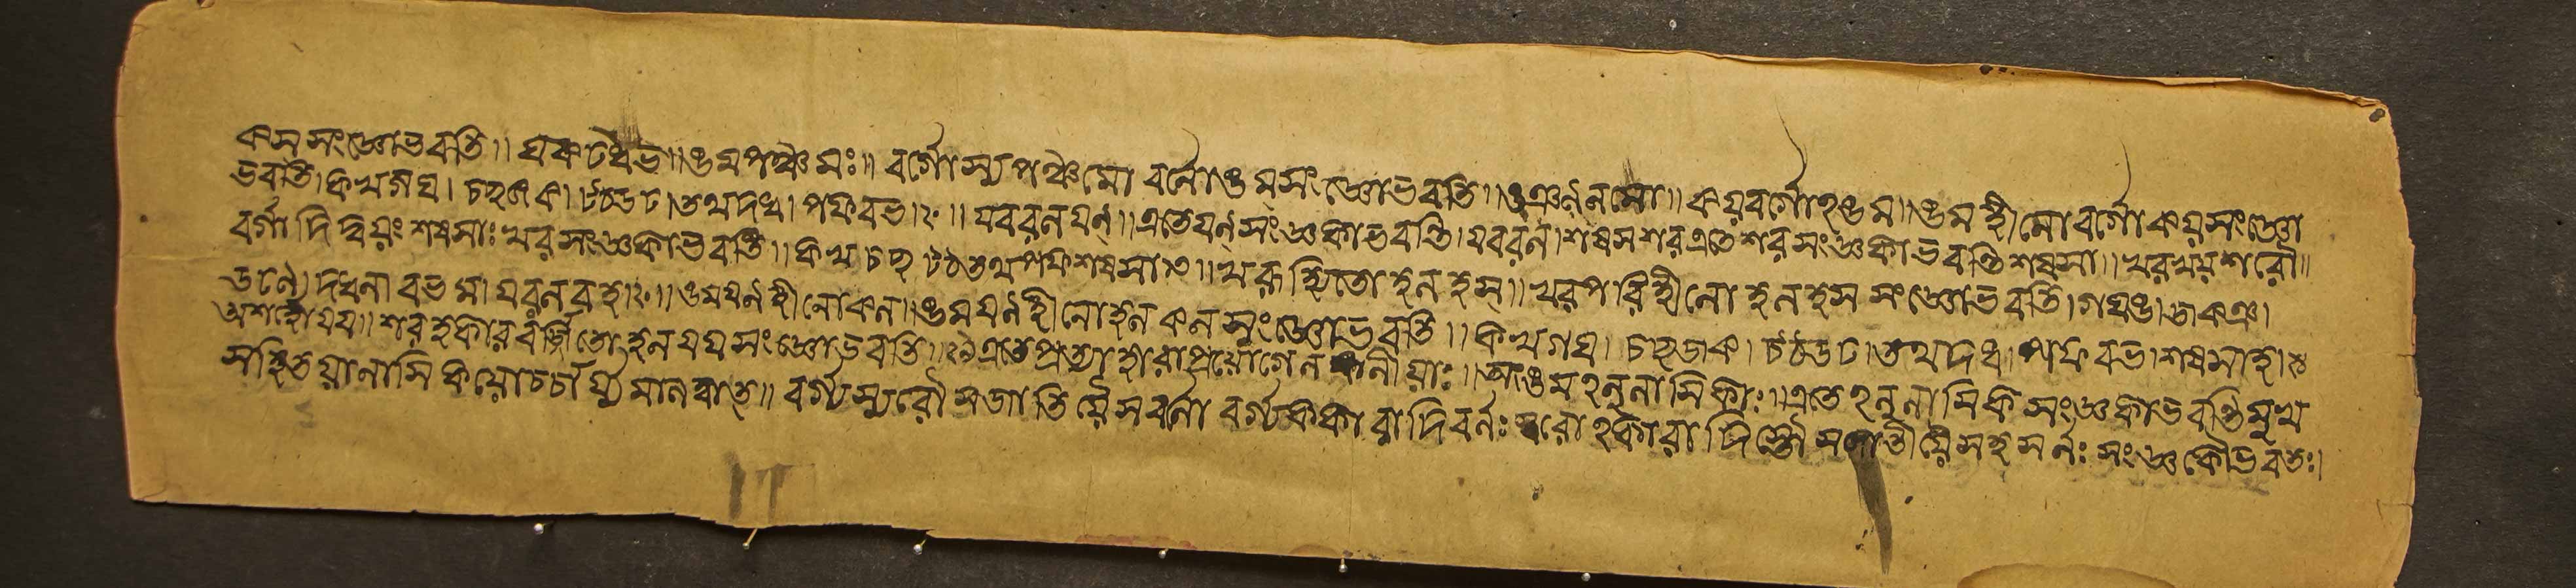 কস সংজ্ঞোভবতি॥ ঘঝঢধভ॥ ঙমপঞ্চমঃ॥ বর্গোস্যপঞ্চমো বর্নোঙমসংজ্ঞোভবতি॥ ঙঞর্ননমো॥ কয়বর্গোহঙম॥ ঙমহীনোবর্গোকয়সংজ্ঞো
ভবতি। কখগঘ। চছজঝ। টঠডঢ। তথদধ। পফবভ। ॥ যবরনযন্॥ এতেযন্সংজ্ঞকাভবন্তি। যবরন। শষসশর এতেশরসংজ্ঞকাভবন্তি শষসা॥ খরখয়শরৌ॥
বর্গাদিদ্বয়ং শষসাঃ খরসংজ্ঞকাভবন্তি॥ কখ চছ টঠতথপফশষসা॥ খরূহিতো হনহস্॥ খরপরিহীনো হনহস সংজ্ঞোভবতি। গঘঙ। জঝঞ।
ডঢণে। দধনা বভমা যরনবহ। ॥ ঙমযর্নহীনোঝন। ঙমযর্নহীনোহনঝনসংজ্ঞোভবতি॥ কখগঘ। চছজঝ। টঠডঢ। তথদধ। পফবভ। শষসাহ।
অশহোযয॥ শরহকারবর্জ্জিতো হনযযসংজ্ঞোভবতি॥ এতেপ্রত্যাহারাপ্রয়োগেন নীয়াঃ॥ অঙমহনুনাসিকাঃ॥ এতেহনুনাসিকসংজ্ঞকাভবন্তিমুখ
সহিতয়ানাসিকয়োচর্চার্য্যমানত্বাত্॥ বর্গ্যস্যরৌসজাতিয়ৈসবর্নো বর্গ্যককারাদিবর্নঃ স্বরোহকারাদিস্তৌ সজাতীয়ৈসহসর্নঃ সংজ্ঞকৌভবতঃ।